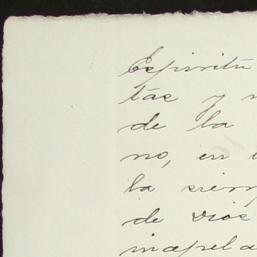 Espiritu
tas y
de la
no, en
la siem
de dios
inapela